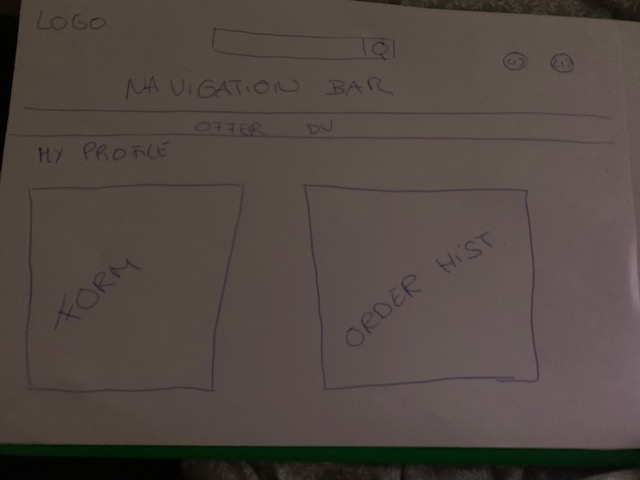 LOGO
Q
NAVIGATION BAR
OFFER DIV
MY PROFILE
FORM
ORDER HIST.